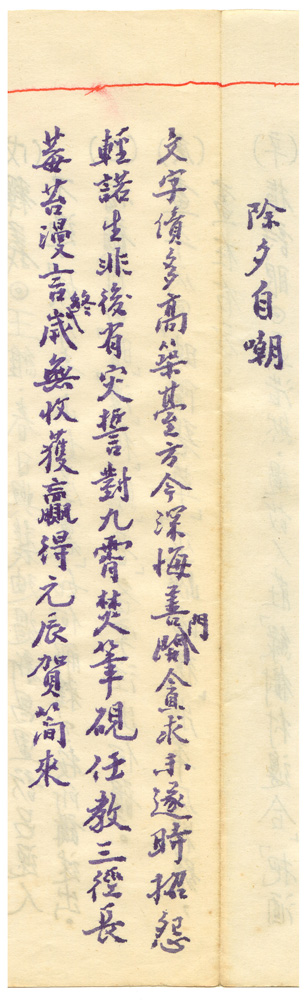 除夕自嘲
文字債多高築臺方今深悔善門開貪求未遂時招怨
輕諾生非後有災誓對九霄焚筆硯任教三徑長
莓苔漫言終歲無收獲贏得元辰賀簡來